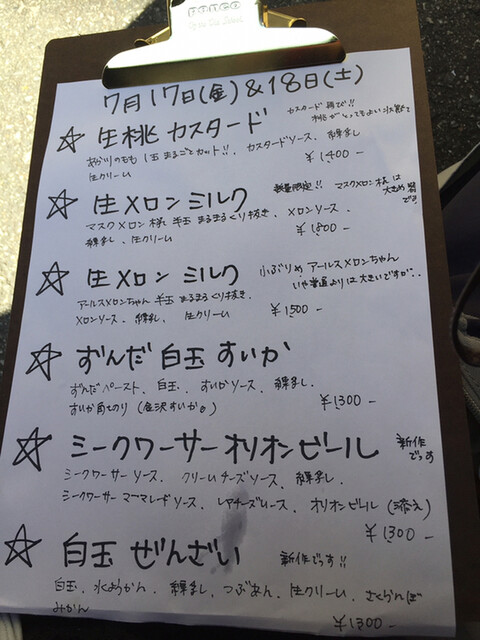 ponco
7月17日(金)&18日(土)
☆ 生桃 カスタード
カスタード 桃で!!
桃が とってもよい状態で
1玉 まるごと カット!!. カスタードソース. 練乳
生クリーム
¥1400-
☆ 生メロン ミルク
数量限定!! マスクメロン様は
大きめ
です
マスクメロン様 半玉 まるまるくり抜き. メロンソース.
練乳. 生クリーム
¥1800-
☆ 生メロン ミルク
小ぶりめ アールスメロンちゃん
いや普通よりは大きいですが..
アールスメロンちゃん 半玉 まるまるくり抜き.
メロンソース. 練乳. 生クリーム
¥1500-
☆ ずんだ 白玉 すいか
ずんだペースト. 白玉. すいかソース. 練乳.
すいか角切り (金沢すいか。)
¥1300-
☆ シークワーサー オリオンビール
新作
でっす
シークワーサーソース. クリームチーズソース. 練乳.
シークワーサーマーマレードソース. レアチーズムース. オリオンビール (添え)
¥1300-
☆ 白玉 ぜんざい
新作でっす!!
白玉. 水ようかん. 練乳. つぶあん. 生クリーム. さくらんぼ
みかん
¥1300-